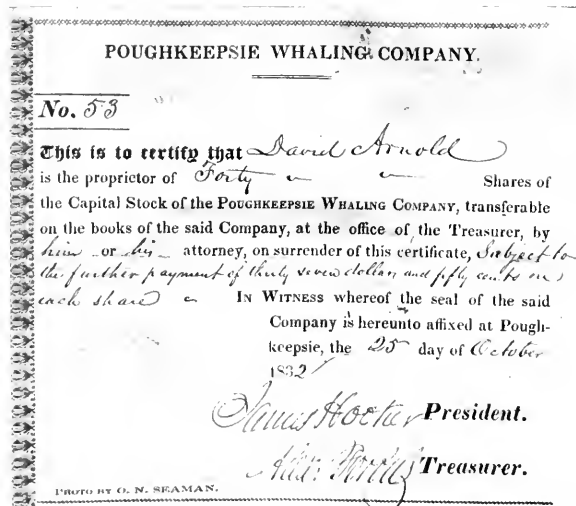 POUGHKEEPSIE WHALING COMPANY.
No. 53
This is to certify that David Arnold
is the proprietor of Forty Shares of
the Capital Stock of the POUGHKEEPSIE WHALING COMPANY, transferable
on the books of the said Company, at the office of the Treasurer, by
him or his attorney, on surrender of this certificate, Subject to
the further payment of thirty seven dollar and fifty cents on
each share IN WITNESS whereof the seal of the said
Company is hereunto affixed at Pough-
keepsie, the 25 day of October
1832
James Hooker President.
Treasurer.
PHOTO BY O. N. SEAMAN.